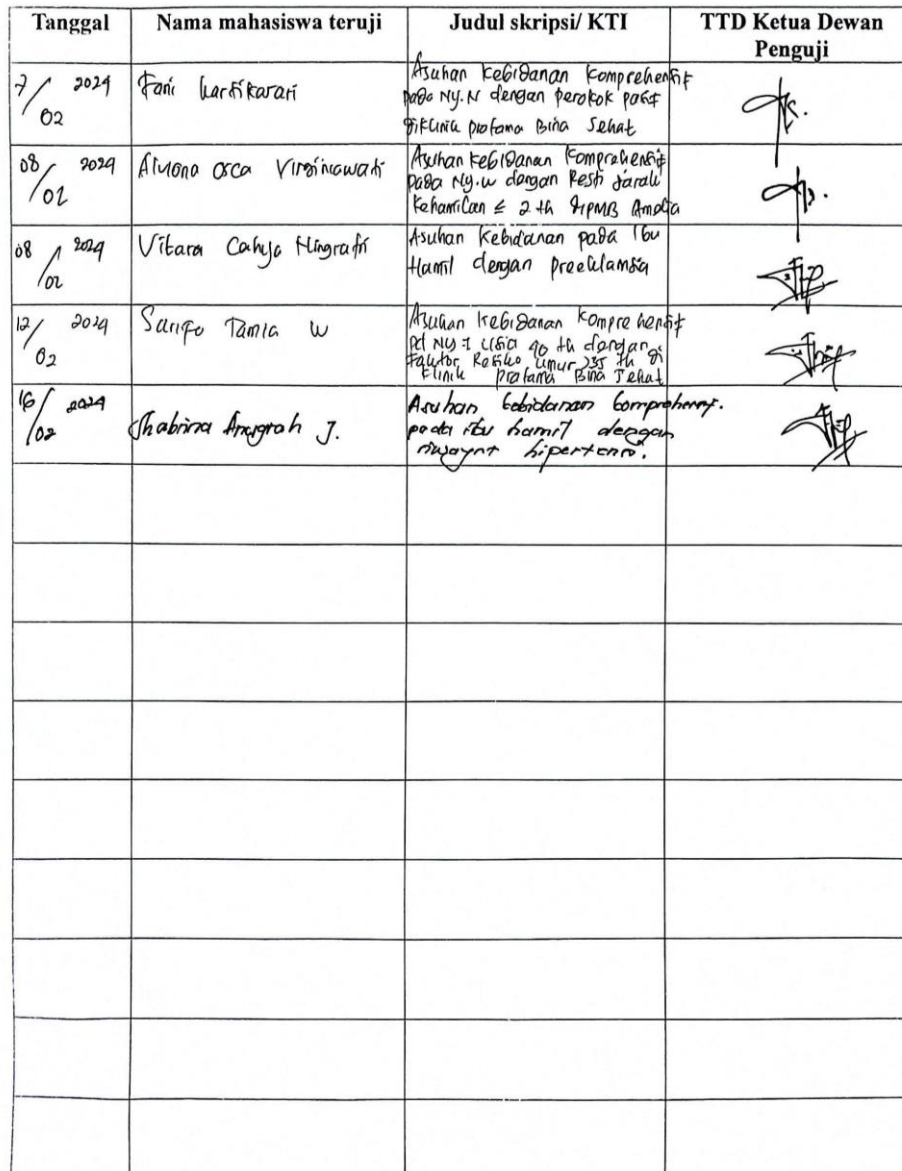 Tanggal Nama mahasiswa teruji Judul skripsi/ KTI TTD Ketua Dewan
Penguji
7/02 2024 Fani Kartikasari
Asuhan kebidanan komprehensif
pada Ny.N dengan perokok pasif
diklinik pratama Bina Sehat
08/02 2024
Virginiawati
Asuhan kebidanan komprehensif
pada Ny.W dengan Resti Jarak
kehamilan ≤ 2 th di PMB Amalia
08/02 2024 Vitara Cahya Ningrati
Asuhan kebidanan pada Ibu
Hamil dengan preeklamsia
12/02 2024 Tamia W
Asuhan kebidanan komprehensif
usia 40 th dengan
Faktor Resiko Umur ≥35 th di
Klinik pratama Bina Sehat
16/02 2024 Shabrina Anugrah J.
Asuhan kebidanan komprehensif.
pada ibu hamil dengan
riwayat hipertensi.